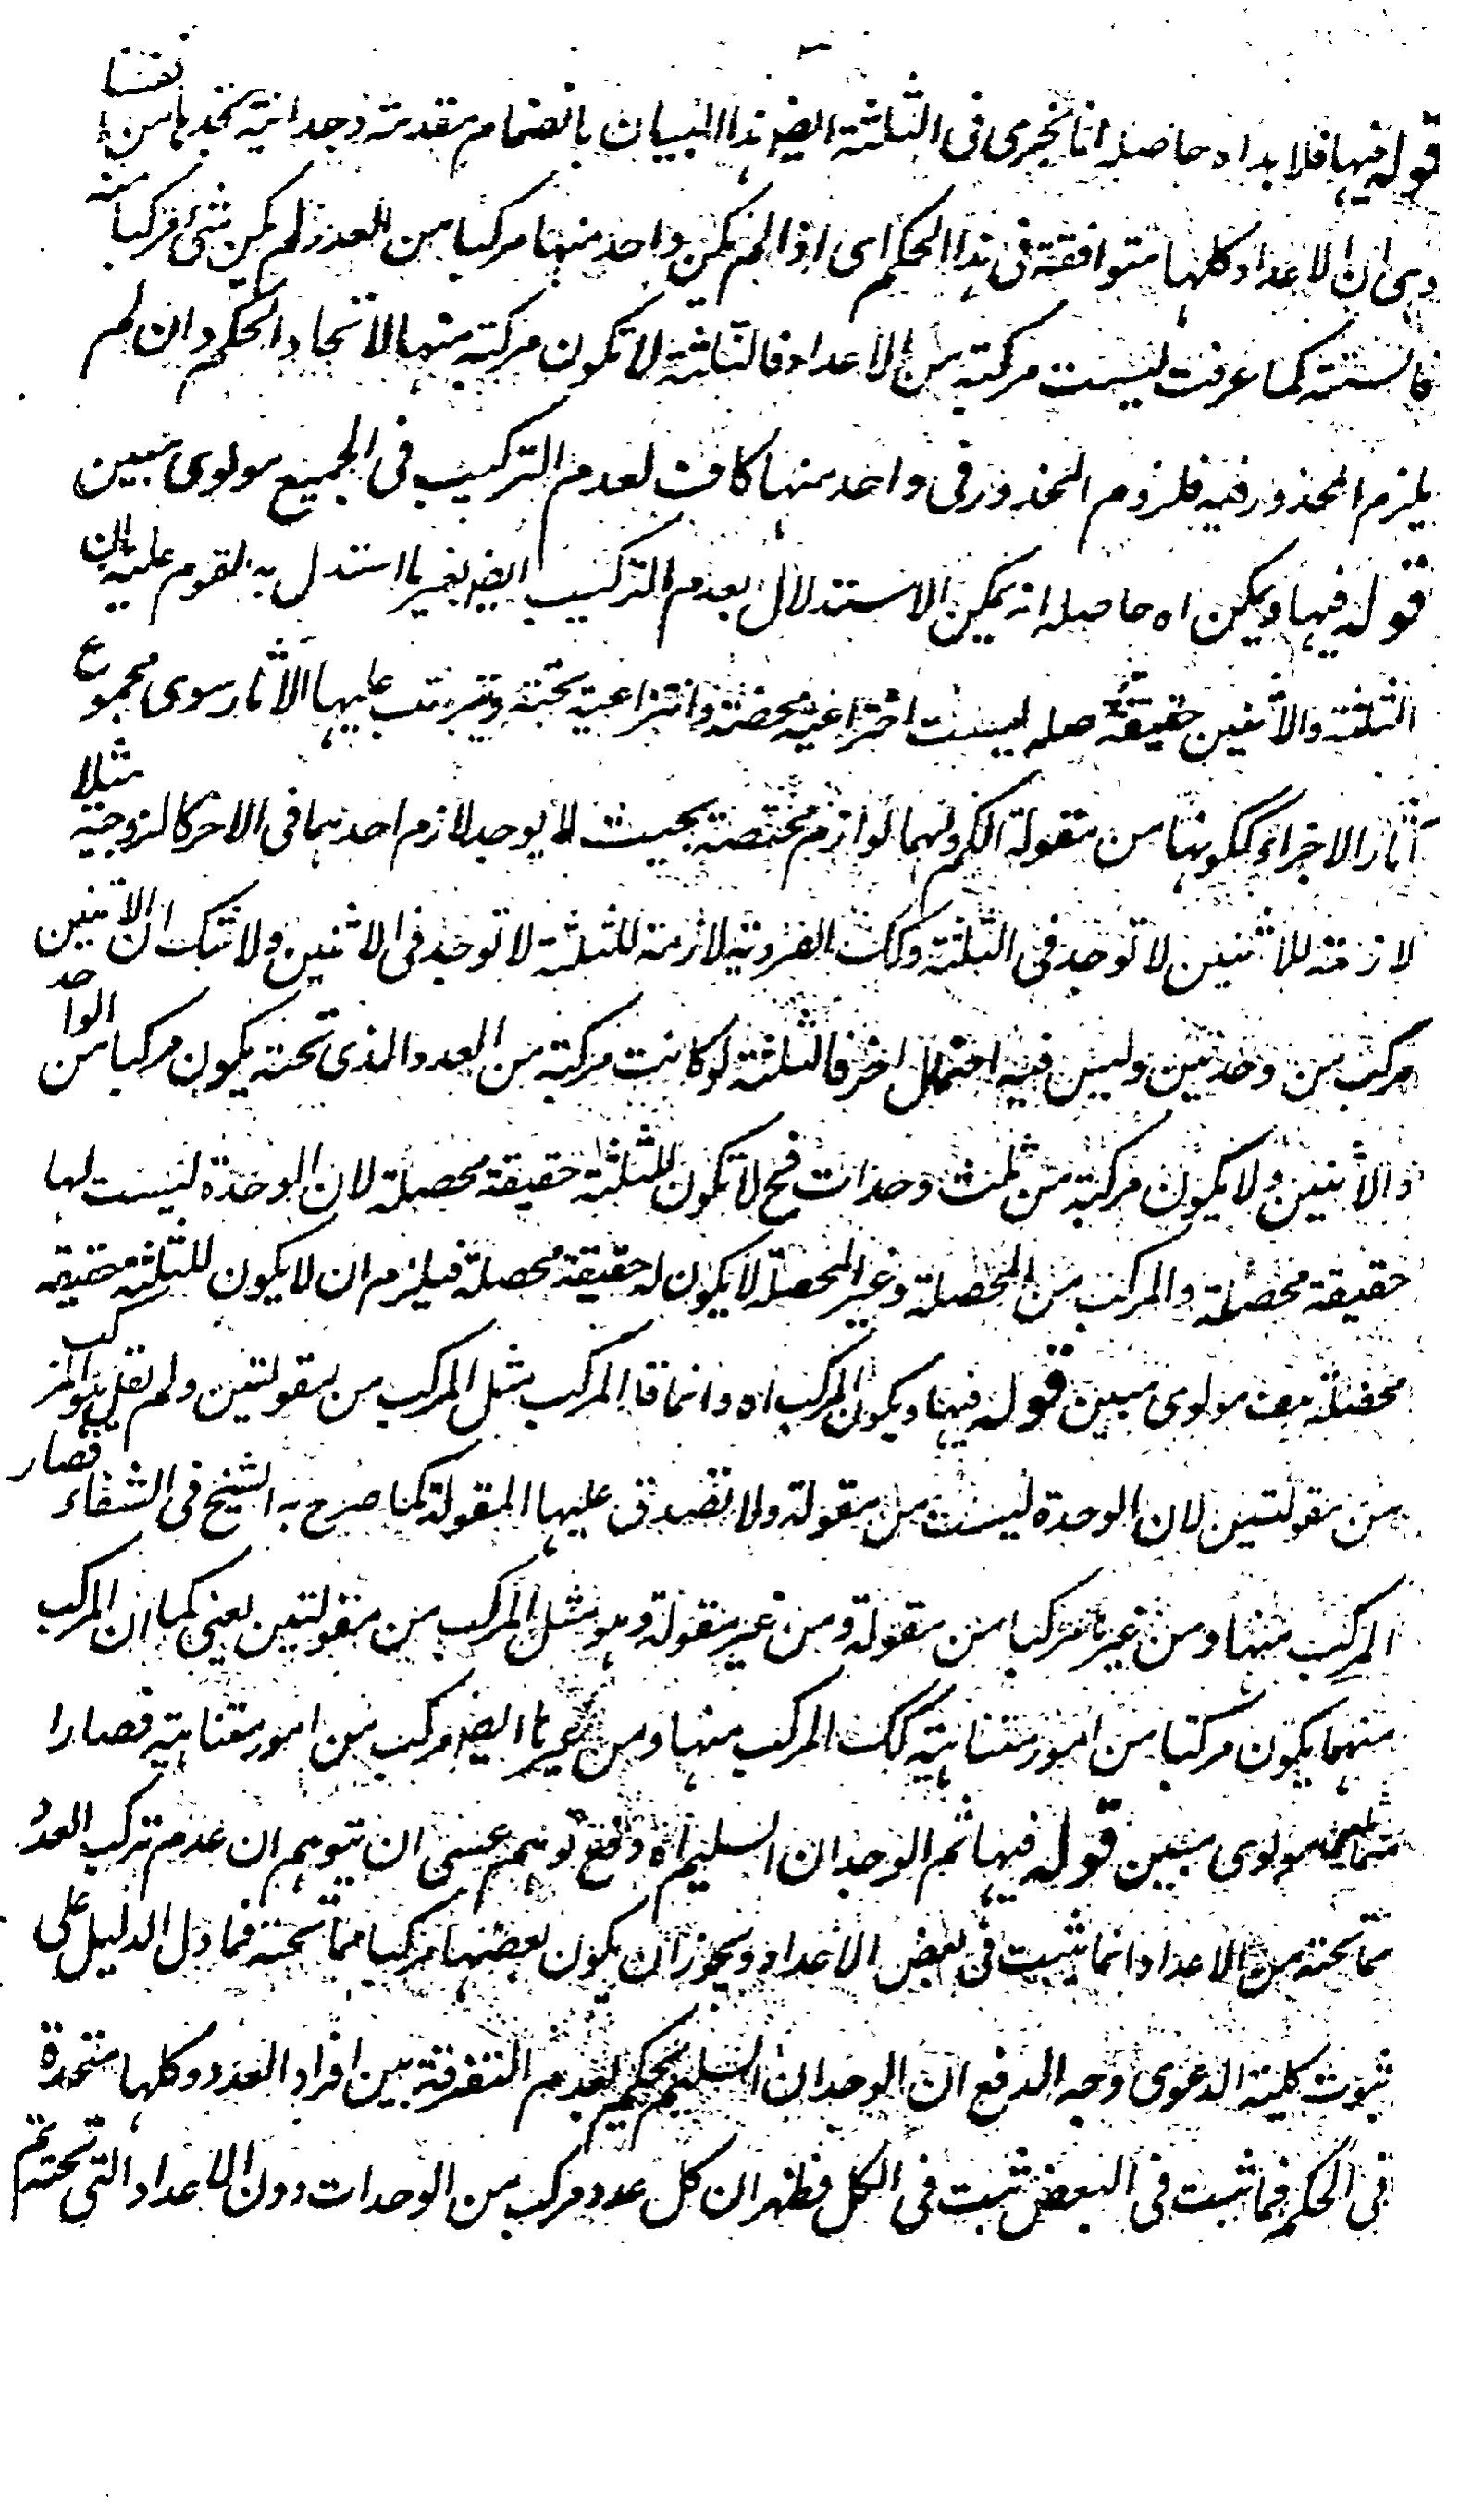 قوله فيها فلا بد اه حاصله انا نجرى فى الثلثة ايضا هذا البيان بانضمام مقدمة وجدانية نجدها من انفسنا
وهى ان الاعداد كلها متوافقة فى هذا الحكم اى اذا لم يكن واحد منها مركبا من العدد لم يكن شئ مركبا منه
فالستة كما عرفت ليست مركبة من الاعداد فالثلثة لا تكون مركبة منها لاتحاد الحكم وان لم
يلزم المحذور فيه فلزوم المحذور فى واحد منها كاف لعدم التركيب فى الجميع مولوى مبين
قوله فيها ويمكن اه حاصله انه يمكن الاستدلال بعدم التركيب ايضا بغير ما استدل به القوم عليه بان
الثلثة والاثنين حقيقة محصله ليست اختراعية محضة وانتزاعية بحتة وتترتب عليها الآثار سوى مجموع
آثار الاجزاء ككونها من مقولة الكم ولهما لوازم مختصة بحيث لا يوجد لازم احدهما فى الاخر كالزوجية مثلا
لازمة للاثنين لا توجد فى الثلثة وكك الفردية لازمة للثلثة لا توجد فى الاثنين ولا شك ان الاثنين
مركب من وحدتين وليس فيه احتمال اخر فالثلثة لو كانت مركبة من العدد الذى تحته يكون مركبا من الواحد
والاثنين ولا يكون مركبة من ثلث وحدات فح لا تكون للثلثة حقيقة محصلة لان الوحدة ليست لها
حقيقة محصلة والمركب من المحصلة وغير المحصلة لا يكون له حقيقة محصلة فيلزم ان لا يكون للثلثة حقيقة
محصلة هف مولوى مبين قوله فيها ويكون المركب اه وانما قال المركب مثل المركب من مقولتين ولم يقل هو المركب
من مقولتين لان الوحدة ليست من مقولة ولا تصدق عليها المقولة كما صرح به الشيخ فى الشفاء فصار
المركب منها ومن غيرها مركبا من مقولة ومن غير مقولة وهو مثل المركب من مقولتين يعنى كما ان المركب
منهما يكون مركبا من امور متنابية كك المركب منها ومن غيرها ايضا مركب من امور متنابية فصارا
متماثلين مولوى مبين قوله فيها ثم الوجدان السليم اه دفع توهم عسى ان يتوهم ان عدم تركب العدد
مما تحته من الاعداد انما ثبت فى بعض الاعداد ويجوز ان يكون بعضها مركبا مما تحته فما دل الدليل على
ثبوت كلية الدعوى وجه الدفع ان الوجدان السليم يحكم بعدم التفرقة بين افراد العدد وكلها متحدة
فى الحكم فما ثبت فى البعض ثبت فى الكل فظهر ان كل عدد مركب من الوحدات دون الاعداد التى تحته تم